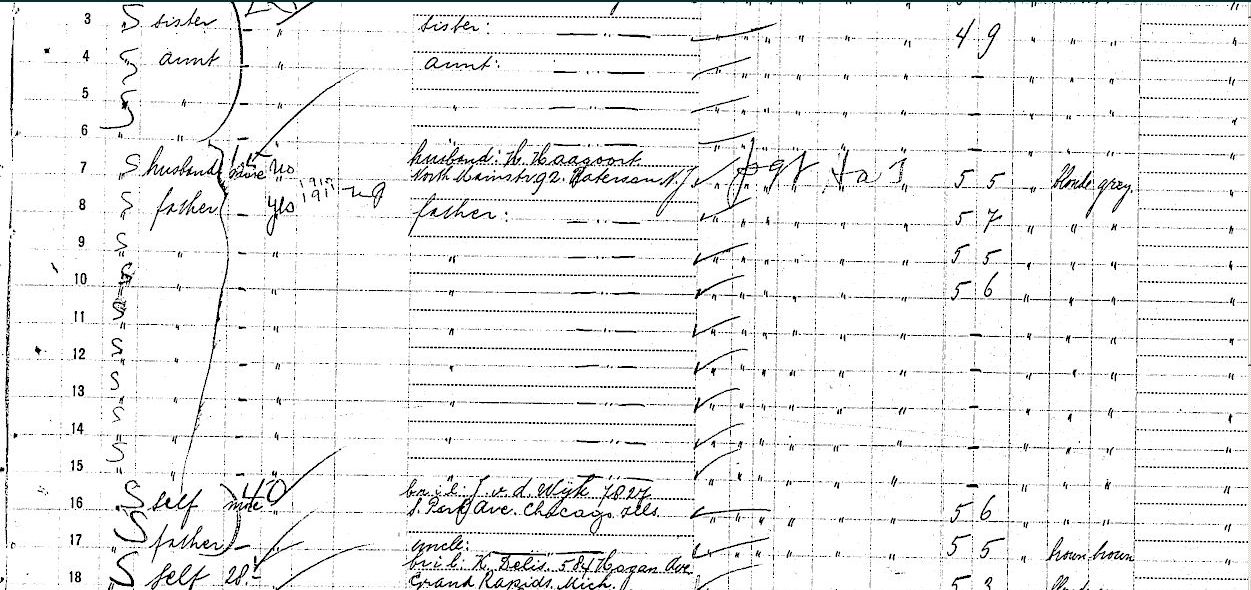 3 S sister - " sister: — " — " " " " 4 9 " " " "
4 S aunt - " aunt: — " — " " " " - " " " "
5 S " - " " — " — " " " " - " " " "
6 " - " " " " " - " " " "
7 S husband more no husband: H. Haagoort
North Main str 92. Paterson N.J. 5 5 " blonde grey. "
8 S father - yes father: — " — " " " " 5 7 " " " "
9 S " - " " — " — " " " " 5 5 " " " "
10 S " - " " — " — " " " " 5 6 " " " "
11 S " - " " — " — " " " " - " " " "
12 S " - " " — " — " " " " - " " " "
13 S " - " " — " — " " " " - " " " "
14 S " - " " — " — " " " " - " " " "
15 " - " " " " " - " " "
16 S self more 40 br. i. l: J. v. d. Wyk 7827
S. Park Ave. Chicago Ills. 5 6 " " " "
17 S father - " uncle: — " — " " " " 5 5 " brown brown
18 S self 28 - br. i. l: K. Delis. 584 Hogan Ave.
Grand Rapids. Mich. 5 3